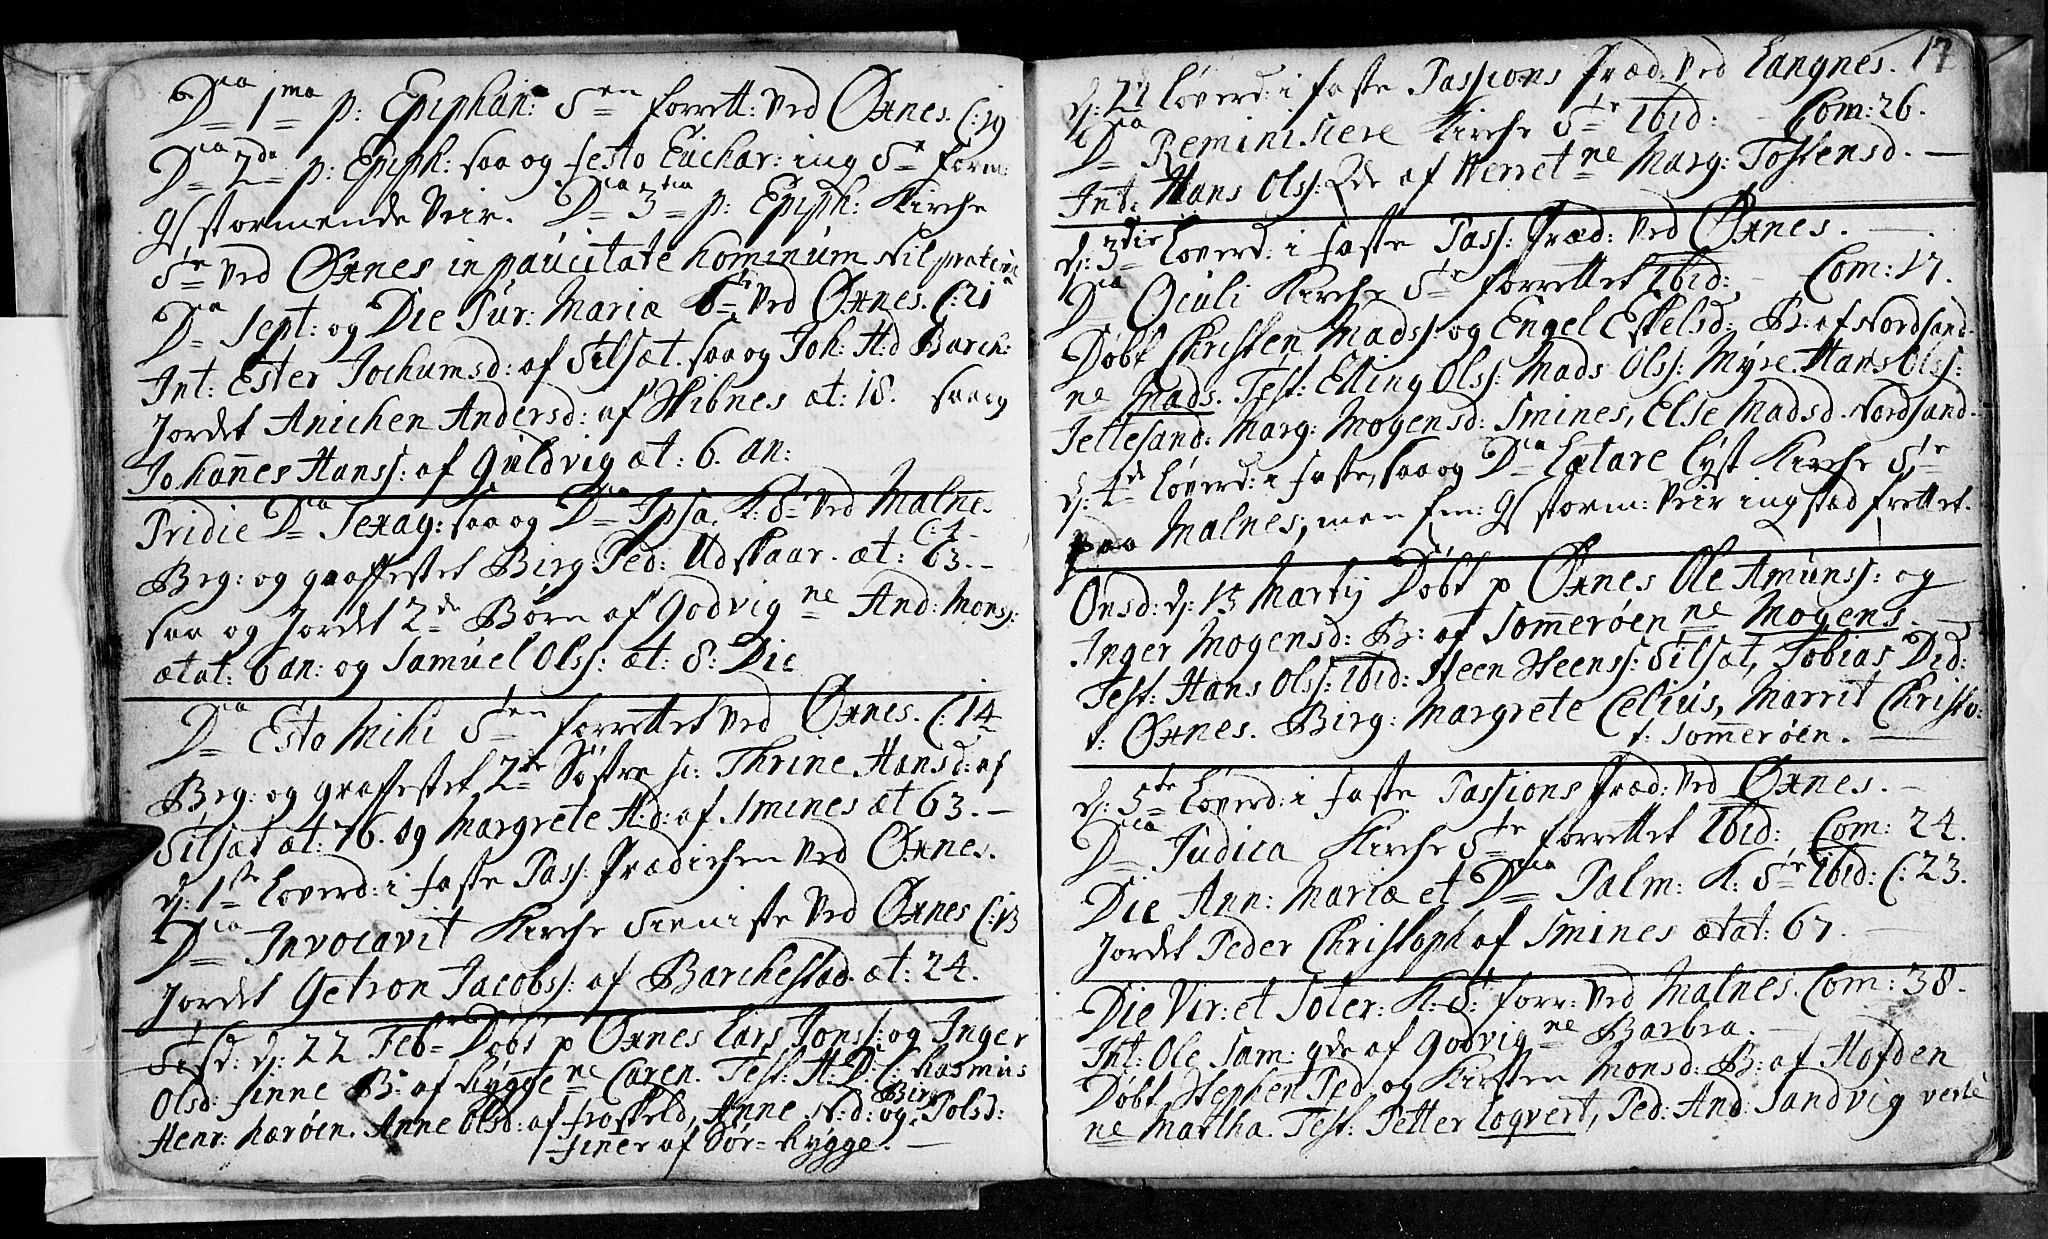 Dca 1ma p: Epiphan: Sten forrett: ved Øxnes. C: 19
Dca 2da p: Epiph: saa og festo Euchar: ing Ste form:
stormende Veir. Dca 3tia p: Epiph: Kirche
Ste ved Øxnes in paucitate hominum nil
Dca Sept: og Die Pur: Mariæ Ste ved Øxnes. C: 21
Int: Ester Jochumsd: af Silsæt. saa og Joh: H:d Barch:
Jordet Anichen Andersd: af Wibnes æt: 18. saa og
Johannes Hanss: af Guldvig æt: 6. an:
Pridie Dca Sexag: saa og Dca Ipsa. K: Ste ved Malne.
C: 4
Beg: og graffestet Birg: Ped: Udskaar. æt: 63. -
saa og Jordet 2de Børn af Godvig ne And: Monss:
ætat: 6 an: og Samuel Olss: æt: 8: Die
Dca Esto Mihi Sten forrettet ved Øxnes. C: 14
Beg: og graffestet 2de Søstre sc: Thrine Hansd: af
Silsæt æt: 76. og Margrete H:d: af Smines æt 63. -
d: 1ste Løverd: i faste Pass: Prædichen ved Øxnes.
Dca Invocavit Kirche Tieniste ved Øxnes C: 13
Jordet Getron Jacobss: af Barchestad æt: 24.
d: 22 Feb: Døbt p Øxnes Lars Jonss: og Inger
Olsd: finne B: af Rygge ne Caren. Test: H: D: C: Rasmus
Henr: Nærøen. Anne Olsd: af froskeld, Anne N:d: og Birg: Polsd:
finer af Sør-Rygge. -
17
d: 22 Løverd: i faste Passions Præd: ved Langnes.
Dca Reminiscere Kirche Ste Ibid: - Com: 26.
Int: Hans Olss: Qde af Werret ne Marg: Tostensd. -
d: 3die Løverd: i faste Pass: Præd: ved Øxnes. -
Dca Oculi Kirche Ste forrettet Ibid: - Com: 17.
Døbt Christen Madss: og Engel Eskelsd: B: af Nordsand
ne Mads. Test: Elling Olss: Mads Olss: Myre. Hans Olss:
Tettesand: Marg: Mogensd: Smines, Else Madsd. Nordsand.
d: 4de Løverd: i faste, saa og Dca Lætare Lyst Kirche Ste
paa Malnes, men storm: Veir ing stad frettet.
Onsd: d: 13 Martij Døbt p Øxnes Ole Amunss: og
Inger Mogensd: B: af Sommerøen ne Mogens. -
Test: Hans Olss: Ibid: Steen Steenss: Silsæt, Tobias Did:
t: Øxnes. Birg: Margrete Celius, Marrit Christo:
t: Sommerøen. -
d: 5te Løverd: i faste Passions Præd: ved Øxnes. -
Dca Judica Kirche Ste forrettet Ibid: Com: 24.
Die Ann: Mariæ et Dca Palm: K: Ste Ibid: C: 23.
Jordet Peder Christoph af Smines ætat: 67. -
Die Vir: et Soter: K: S: forr: ved Malnes. Com: 38.
Int: Ole Sam: gde af Godvig ne Barbra. -
Døbt Stephen Ped og Kirsten Monsd: B: af Hofden
ne Martha. Test: Petter Loqvert, Ped: And: Sandvig verte